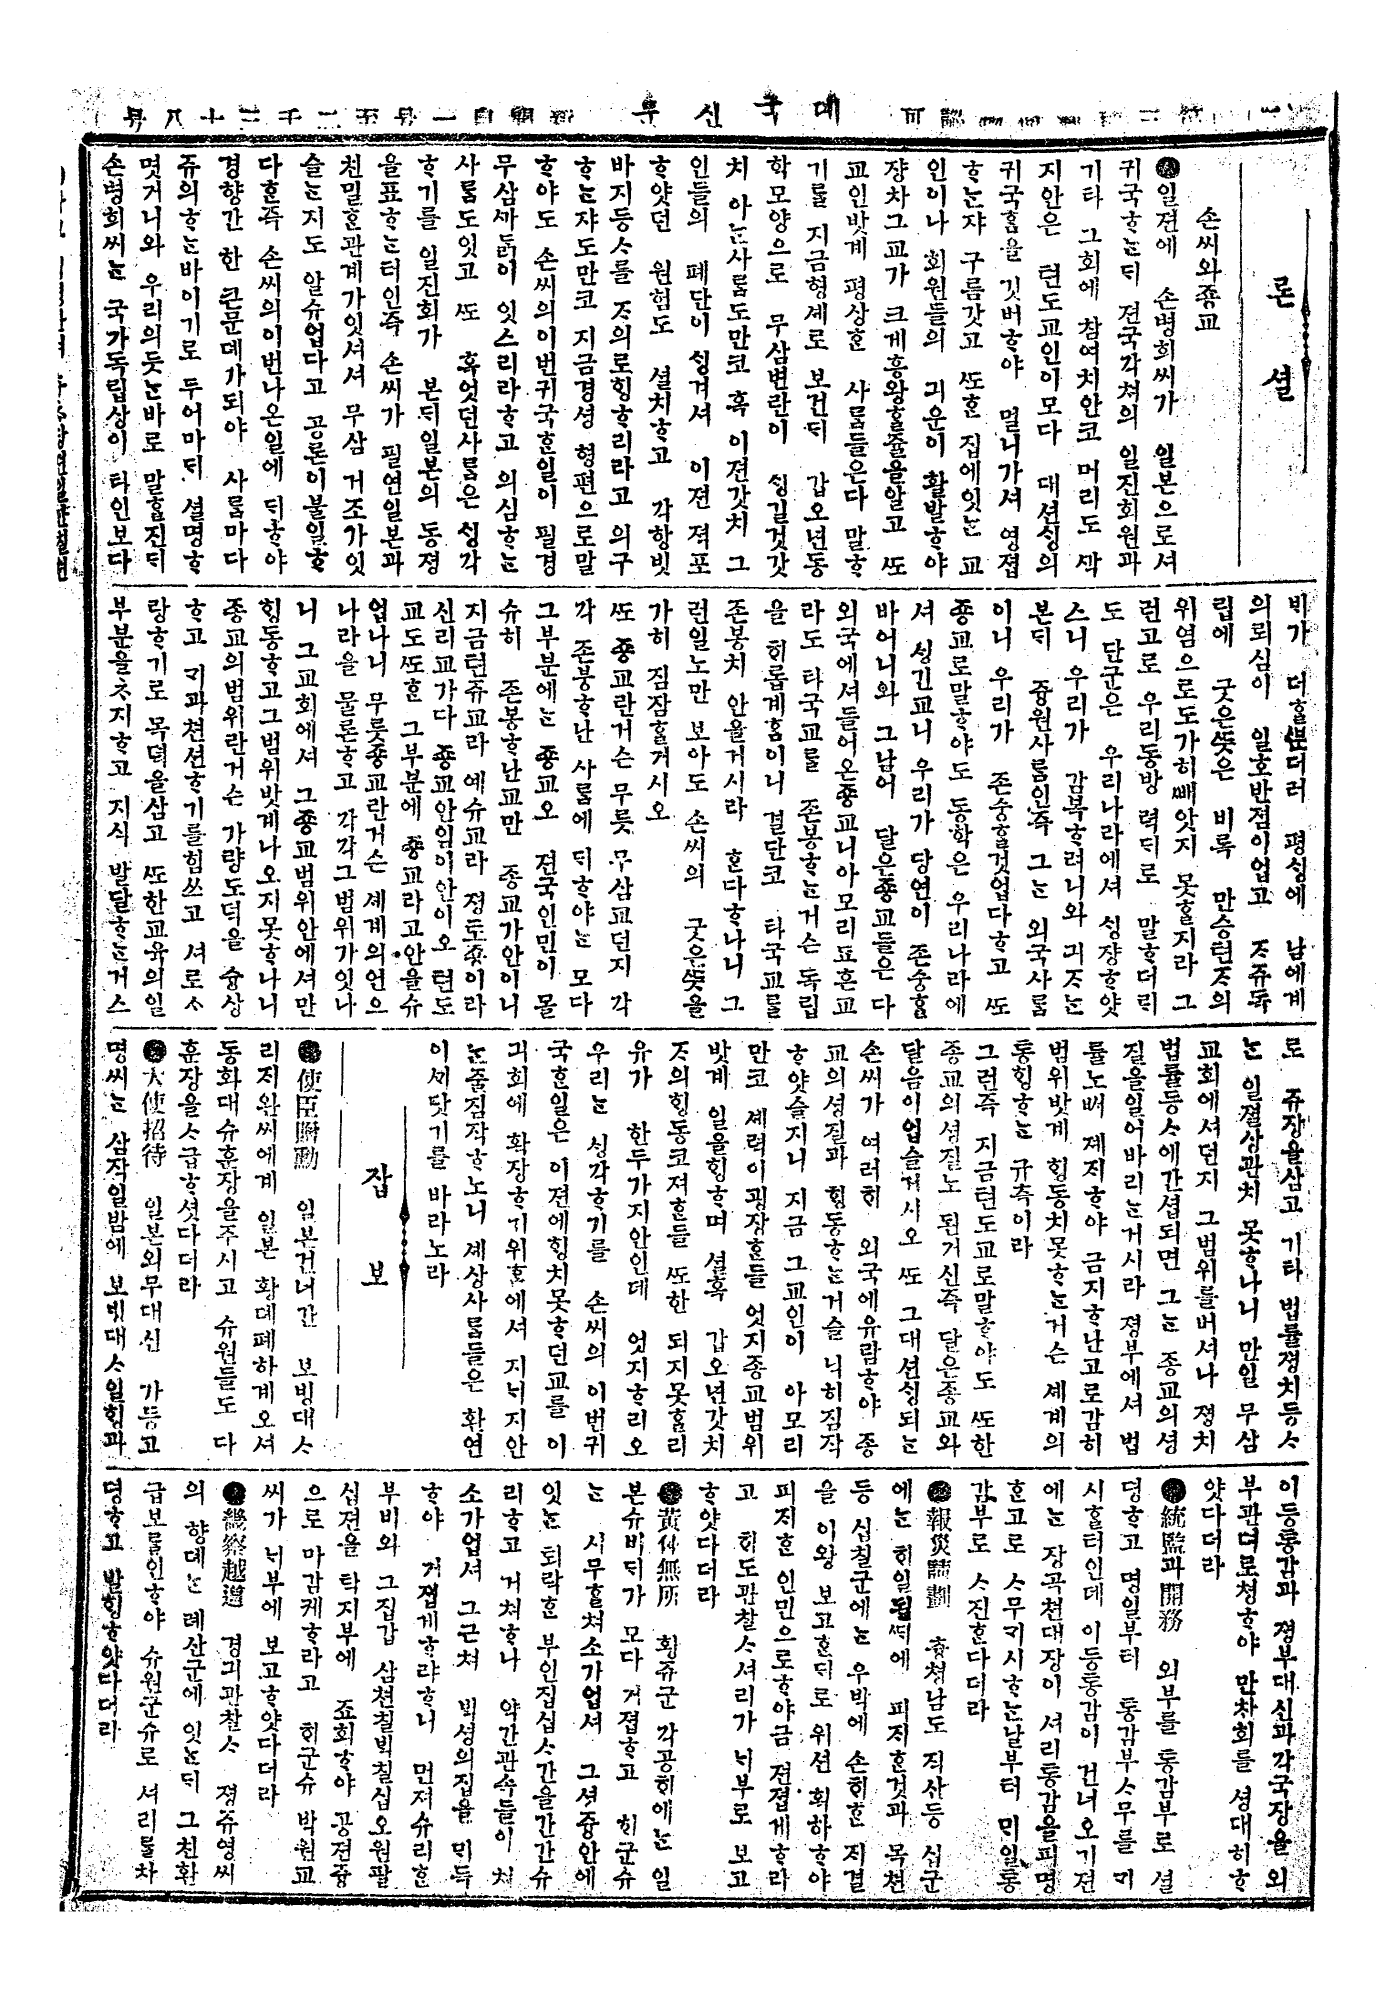 대국신문
론셜
손씨와죵교
일젼에 손병희씨가 일본으로셔
귀국ᄒᆞᄂᆞᆫᄃᆡ 젼국각쳐의 일진회원과
기타 그회에 참여치안코 머리도 싹
지안은 텬도교인이모다 대션ᄉᆡᆼ의
귀국홈을 깃버ᄒᆞ야 멀니가셔 영졉
ᄒᆞᄂᆞᆫ쟈 구름갓고 ᄯᅩᄒᆞᆫ 집에잇ᄂᆞᆫ 교
인이나 회원들의 긔운이 활발ᄒᆞ야
쟝차그교가 크게흥왕ᄒᆞᆯ쥴을알고 ᄯᅩ
교인밧게 평상ᄒᆞᆫ 사ᄅᆞᆷ들은다 말ᄒᆞ
기ᄅᆞᆯ 지금형셰로 보건ᄃᆡ 갑오년동
학모양으로 무삼변란이 ᄉᆡᆼ길것갓
치 아ᄂᆞᆫ사ᄅᆞᆷ도만코 혹 이젼갓치 그
인들의 폐단이 ᄉᆡᆼ겨셔 이젼 젹포
ᄒᆞ얏던 원혐도 셜치ᄒᆞ고 각항빗
바지등ᄉᆞ를 ᄌᆞ의로ᄒᆡᆼᄒᆞ리라고 의구
ᄒᆞᄂᆞᆫ쟈도만코 지금경셩 형편으로말
ᄒᆞ야도 손씨의이번귀국ᄒᆞᆫ일이 필경
무삼ᄭᆞ닭이 잇스리라ᄒᆞ고 의심ᄒᆞᄂᆞᆫ
사ᄅᆞᆷ도잇고 ᄯᅩ 혹엇던사ᄅᆞᆷ은 ᄉᆡᆼ각
ᄒᆞ기를 일진회가 본ᄃᆡ일본의 동졍
을표ᄒᆞᄂᆞᆫ터인즉 손씨가 필연일본과
친밀ᄒᆞᆫ관계가잇셔셔 무삼 거조가잇
슬ᄂᆞᆫ지도 알슈업다고 공론이불일ᄒᆞ
다ᄒᆞᆫ즉 손씨의이번나온일에 ᄃᆡᄒᆞ야
경향간 한 큰문뎨가되야 사ᄅᆞᆷ마다
쥬의ᄒᆞᄂᆞᆫ바이기로 두어마ᄃᆡ 셜명ᄒᆞ
멋거니와 우리의듯ᄂᆞᆫ바로 말ᄒᆞᆯ진ᄃᆡ
손병희씨ᄂᆞᆫ 국가독립상이 타인보다
ᄇᆡ가 더ᄒᆞᆯᄲᅮᆫ더러 평ᄉᆡᆼ에 남에게
의뢰심이 일호반졈이업고 ᄌᆞ쥬독
립에 굿은ᄯᅳᆺ은 비록 만승텬ᄌᆞ의
위엄으로도가히ᄲᅢ앗지 못ᄒᆞᆯ지라 그
런고로 우리동방 력ᄃᆡ로 말ᄒᆞ더ᄅᆡ
도 단군은 우리나라에셔 ᄉᆡᆼ쟝ᄒᆞ얏
스니 우리가 감복ᄒᆞ려니와 긔ᄌᆞᄂᆞᆫ
본ᄃᆡ 즁원사ᄅᆞᆷ인즉 그ᄂᆞᆫ 외국사ᄅᆞᆷ
이니 우리가 존숭ᄒᆞᆯ것업다ᄒᆞ고 ᄯᅩ
죵교로말ᄒᆞ야도 동학은 우리나라에
셔 ᄉᆡᆼ긴교니 우리가 당연이 존숭홈
바어니와 그남어 달은죵교들은 다
외국에셔들어온죵교니아모리됴흔교
라도 타국교를 존봉ᄒᆞᄂᆞᆫ거슨 독립
을 ᄒᆡ롭게홈이니 결단코 타국교를
존봉치 안을거시라 혼다ᄒᆞ나니 그
런일노만 보아도 손씨의 굿은ᄯᅳᆺ을
가히 짐쟉ᄒᆞᆯ거시오
ᄯᅩ 죵교란거슨 무릇 무삼교던지 각
각 존봉ᄒᆞ난 사ᄅᆞᆷ에 ᄃᆡᄒᆞ야ᄂᆞᆫ 모다
그부분에ᄂᆞᆫ 죵교오 젼국인민이 몰
슈히 존봉ᄒᆞ난교만 죵교가안이니
지금텬쥬교라 예슈교라 졍토죵이라
신리교가다 죵교안임이안이오 텬도
교도ᄯᅩᄒᆞᆫ 그부분에 죵교라고안을슈
업나니 무릇죵교란거슨 셰계의언으
나라을 물론ᄒᆞ고 각각그범위가잇나
니 그교회에셔 그죵교범위안에셔만
ᄒᆡᆼ동ᄒᆞ고그범위밧게나오지못ᄒᆞ나니
죵교의범위란거슨 가량도덕을 슝상
ᄒᆞ고 ᄀᆡ과쳔션ᄒᆞ기를힘쓰고 셔로ᄉᆞ
랑ᄒᆞ기로 목뎍을삼고 ᄯᅩ한교육의일
부분을ᄎᆞ지ᄒᆞ고 지식 발달ᄒᆞᄂᆞᆫ거스
로 쥬장을삼고 기타 법률졍치등ᄉᆞ
ᄂᆞᆫ 일졀상관치 못ᄒᆞ나니 만일 무삼
교회에셔던지 그범위를버셔나 졍치
법률등ᄉᆞ에간셥되면 그ᄂᆞᆫ 죵교의셩
질을일어바리ᄂᆞᆫ거시라 졍부에셔 법
률노ᄡᅥ 졔지ᄒᆞ야 금지ᄒᆞ난고로감히
범위밧게 ᄒᆡᆼ동치못ᄒᆞᄂᆞᆫ거슨 셰계의
통ᄒᆡᆼᄒᆞᄂᆞᆫ 규측이라
그런즉 지금텬도교로말ᄒᆞ야도 ᄯᅩ한
죵교의셩질노 된거신즉 달은죵교와
달음이업슬거시오 ᄯᅩ 그대션ᄉᆡᆼ되ᄂᆞᆫ
손씨가 여러ᄒᆡ 외국에유람ᄒᆞ야 죵
교의셩질과 ᄒᆡᆼ동ᄒᆞᄂᆞᆫ거슬 닉히짐쟉
ᄒᆞ얏슬지니 지금 그교인이 아모리
만코 셰력이굉장ᄒᆞᆫ들 엇지죵교범위
밧게 일을ᄒᆡᆼᄒᆞ며 셜혹 갑오년갓치
ᄌᆞ의ᄒᆡᆼ동코져ᄒᆞᆫ들 ᄯᅩ한 되지못ᄒᆞᆯ리
유가 한두가지안인데 엇지ᄒᆞ리오
우리ᄂᆞᆫ ᄉᆡᆼ각ᄒᆞ기를 손씨의 이번귀
국ᄒᆞᆫ일은 이젼에ᄒᆡᆼ치못ᄒᆞ던교를 이
긔회에 확장ᄒᆞ기위ᄒᆞ에셔 지ᄂᆡ지안
ᄂᆞᆫ줄짐쟉ᄒᆞ노니 셰상사ᄅᆞᆷ들은 환연
이ᄭᆡ닷기를 바라노라
잡보
使臣贈勳 일본건너간 보빙대ᄉᆞ
리ᄌᆡ완씨에게 일본 황뎨폐하게오셔
동화대슈훈장을주시고 슈원들도 다
훈장을ᄉᆞ급ᄒᆞ셧다더라
大使招待 일본외무대신 가등고
명씨ᄂᆞᆫ 삼작일밤에 보빙대ᄉᆞ일ᄒᆡᆼ과
이등통감과 졍부대신과각국장을 외
부관뎌로쳥ᄒᆞ야 만찬회를 셩대히ᄒᆞ
얏다더라
統監과開務 외부를 통감부로 셜
뎡ᄒᆞ고 명일부터 통감부ᄉᆞ무를 ᄀᆡ
시ᄒᆞᆯ터인데 이등통감이 건너오기젼
에ᄂᆞᆫ 장곡쳔대장이 셔리통감을피명
ᄒᆞᆫ고로 ᄉᆞ무ᄀᆡ시ᄒᆞᄂᆞᆫ날부터 ᄆᆡ일통
감부로 ᄉᆞ진ᄒᆞᆫ다더라
報災請劃 츙쳥남도 직산등 십군
에ᄂᆞᆫ ᄒᆡ일ᄯᆡ에 피ᄌᆡᄒᆞᆫ것과 목쳔
등 십칠군에ᄂᆞᆫ 우박에 손ᄒᆡᄒᆞᆫ ᄌᆡ결
을 이왕 보고ᄒᆞᆫᄃᆡ로 위션 획하ᄒᆞ야
피ᄌᆡᄒᆞᆫ 인민으로ᄒᆞ야금 젼졉게ᄒᆞ라
고 ᄒᆡ도관찰ᄉᆞ셔리가 ᄂᆡ부로 보고
ᄒᆞ얏다더라
黃倅無所 황쥬군 각공ᄒᆡ에ᄂᆞᆫ 일
본슈비ᄃᆡ가 모다 거졉ᄒᆞ고 ᄒᆡ군슈
ᄂᆞᆫ 시무ᄒᆞᆯ쳐소가업셔 그셩즁안에
잇ᄂᆞᆫ 퇴락ᄒᆞᆫ 부인집십ᄉᆞ간을간간슈
리ᄒᆞ고 거쳐ᄒᆞ나 약간관속들이 쳐
소가업셔 그근쳐 ᄇᆡᆨ셩의집을 ᄆᆡ득
ᄒᆞ야 거졉게ᄒᆞ랴ᄒᆞ니 먼져슈리ᄒᆞᆫ
부비와 그집갑 삼쳔칠ᄇᆡᆨ칠십오원팔
십젼을 탁지부에 죠회ᄒᆞ야 공젼즁
으로 마감케ᄒᆞ라고 ᄒᆡ군슈 박원교
씨가 ᄂᆡ부에 보고ᄒᆞ얏다더라
譏察越邊 경긔관찰ᄉᆞ 졍쥬영씨
의 향뎨ᄂᆞᆫ 례산군에 잇ᄂᆞᆫᄃᆡ 그친환
급보를인ᄒᆞ야 슈원군슈로 셔리를차
뎡ᄒᆞ고 발ᄒᆡᆼᄒᆞ얏다더라